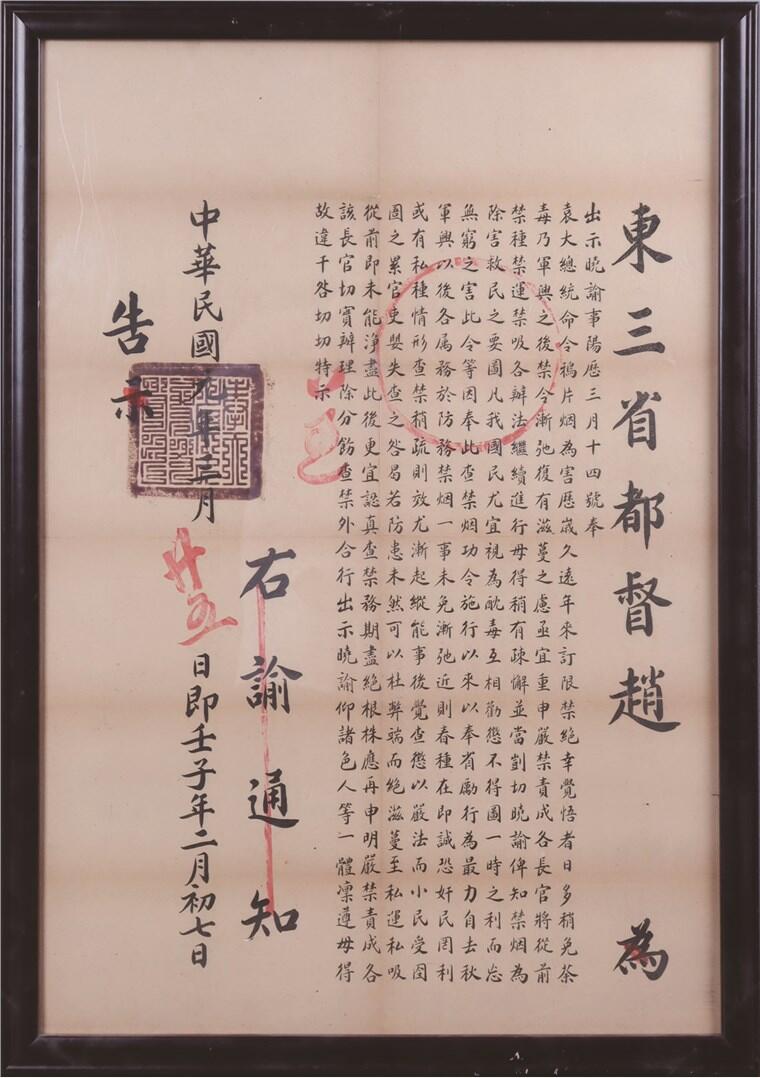 東三省都督趙 為
出示曉諭事陽歷三月十四號奉
袁大總統命令鴉片烟為害歷歲久遠年來訂限禁絕幸覺悟者日多稍免荼
毒乃軍興之後禁令漸弛復有滋蔓之慮亟宜重申嚴禁責成各長官將從前
禁種禁運禁吸各辦法繼續進行毋得稍有疎懈並當剴切曉諭俾知禁烟為
除害救民之要圖凡我國民尤宜視為酖毒互相勸懲不得圖一時之利而忘
無窮之害此令等因奉此查禁烟功令施行以來以奉省勵行為最力自去秋
軍興以後各属務於防務禁烟一事未免漸弛近則春種在即誠恐奸民罔利
或有私種情形查禁稍疏則效尤漸起縱能事後覺查懲以嚴法而小民受囹
圄之累官吏嬰失查之咎曷若防患未然可以杜弊端而絕滋蔓至私運私吸
從前即未能淨盡此後更宜認真查禁務期盡絕根株應再申明嚴禁責成各
該長官切實辦理除分飭查禁外合行出示曉諭仰諸色人等一體凜遵毋得
故違干咎切切特示
右諭通知
中華民國元年三月廿五日即壬子年二月初七日
告示